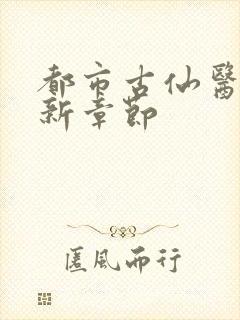 都市古仙醫
新章節
匿風而行